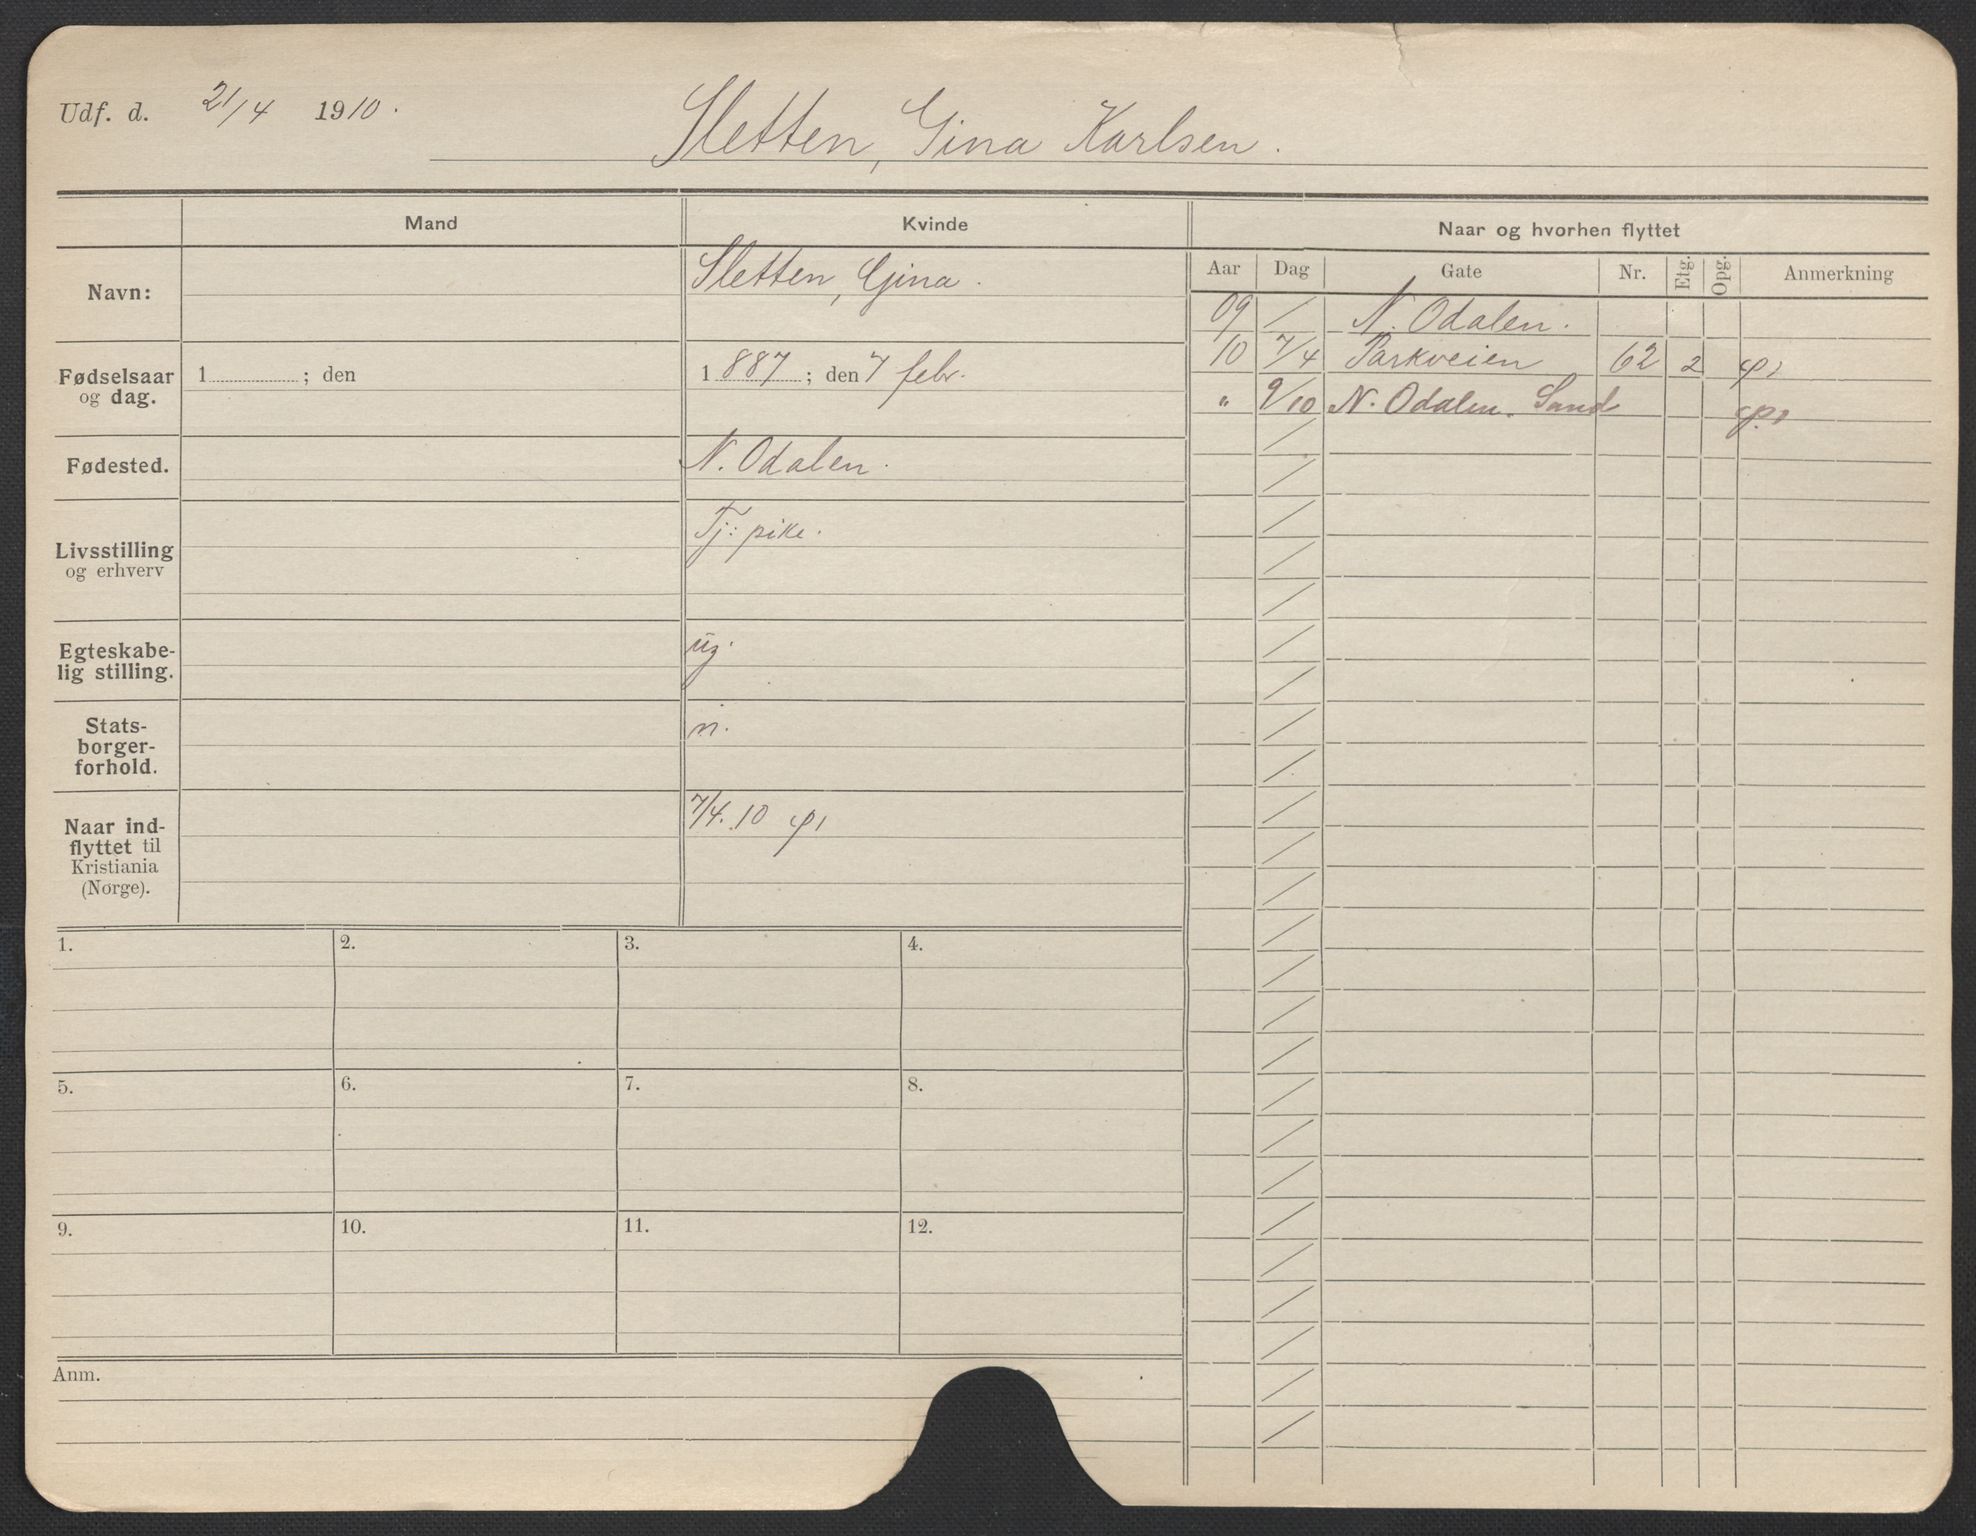 Udf. d. 21/4 1910.
Sletten, Gina Karlsen.
Mand
Kvinde
Naar og hvorhen flyttet
Navn:
Sletten, Gina.
Fødselsaar og dag.
1 ; den
1887; den 7 febr.
Fødested.
N. Odalen.
Livsstilling og erhverv
Tj: pike.
Egteskabe-
lig stilling.
ug.
Stats-
borger-
forhold.
n.
Naar ind-
flyttet til
Kristiania
(Norge).
7/4. 10
Aar Dag Gate Nr. Etg. Opg. Anmerkning
09 / N. Odalen.
10 7/4 Parkveien 62 2
" 9/10 N. Odalen. Sand
1. 2. 3. 4.
5. 6. 7. 8.
9. 10. 11. 12.
Anm.